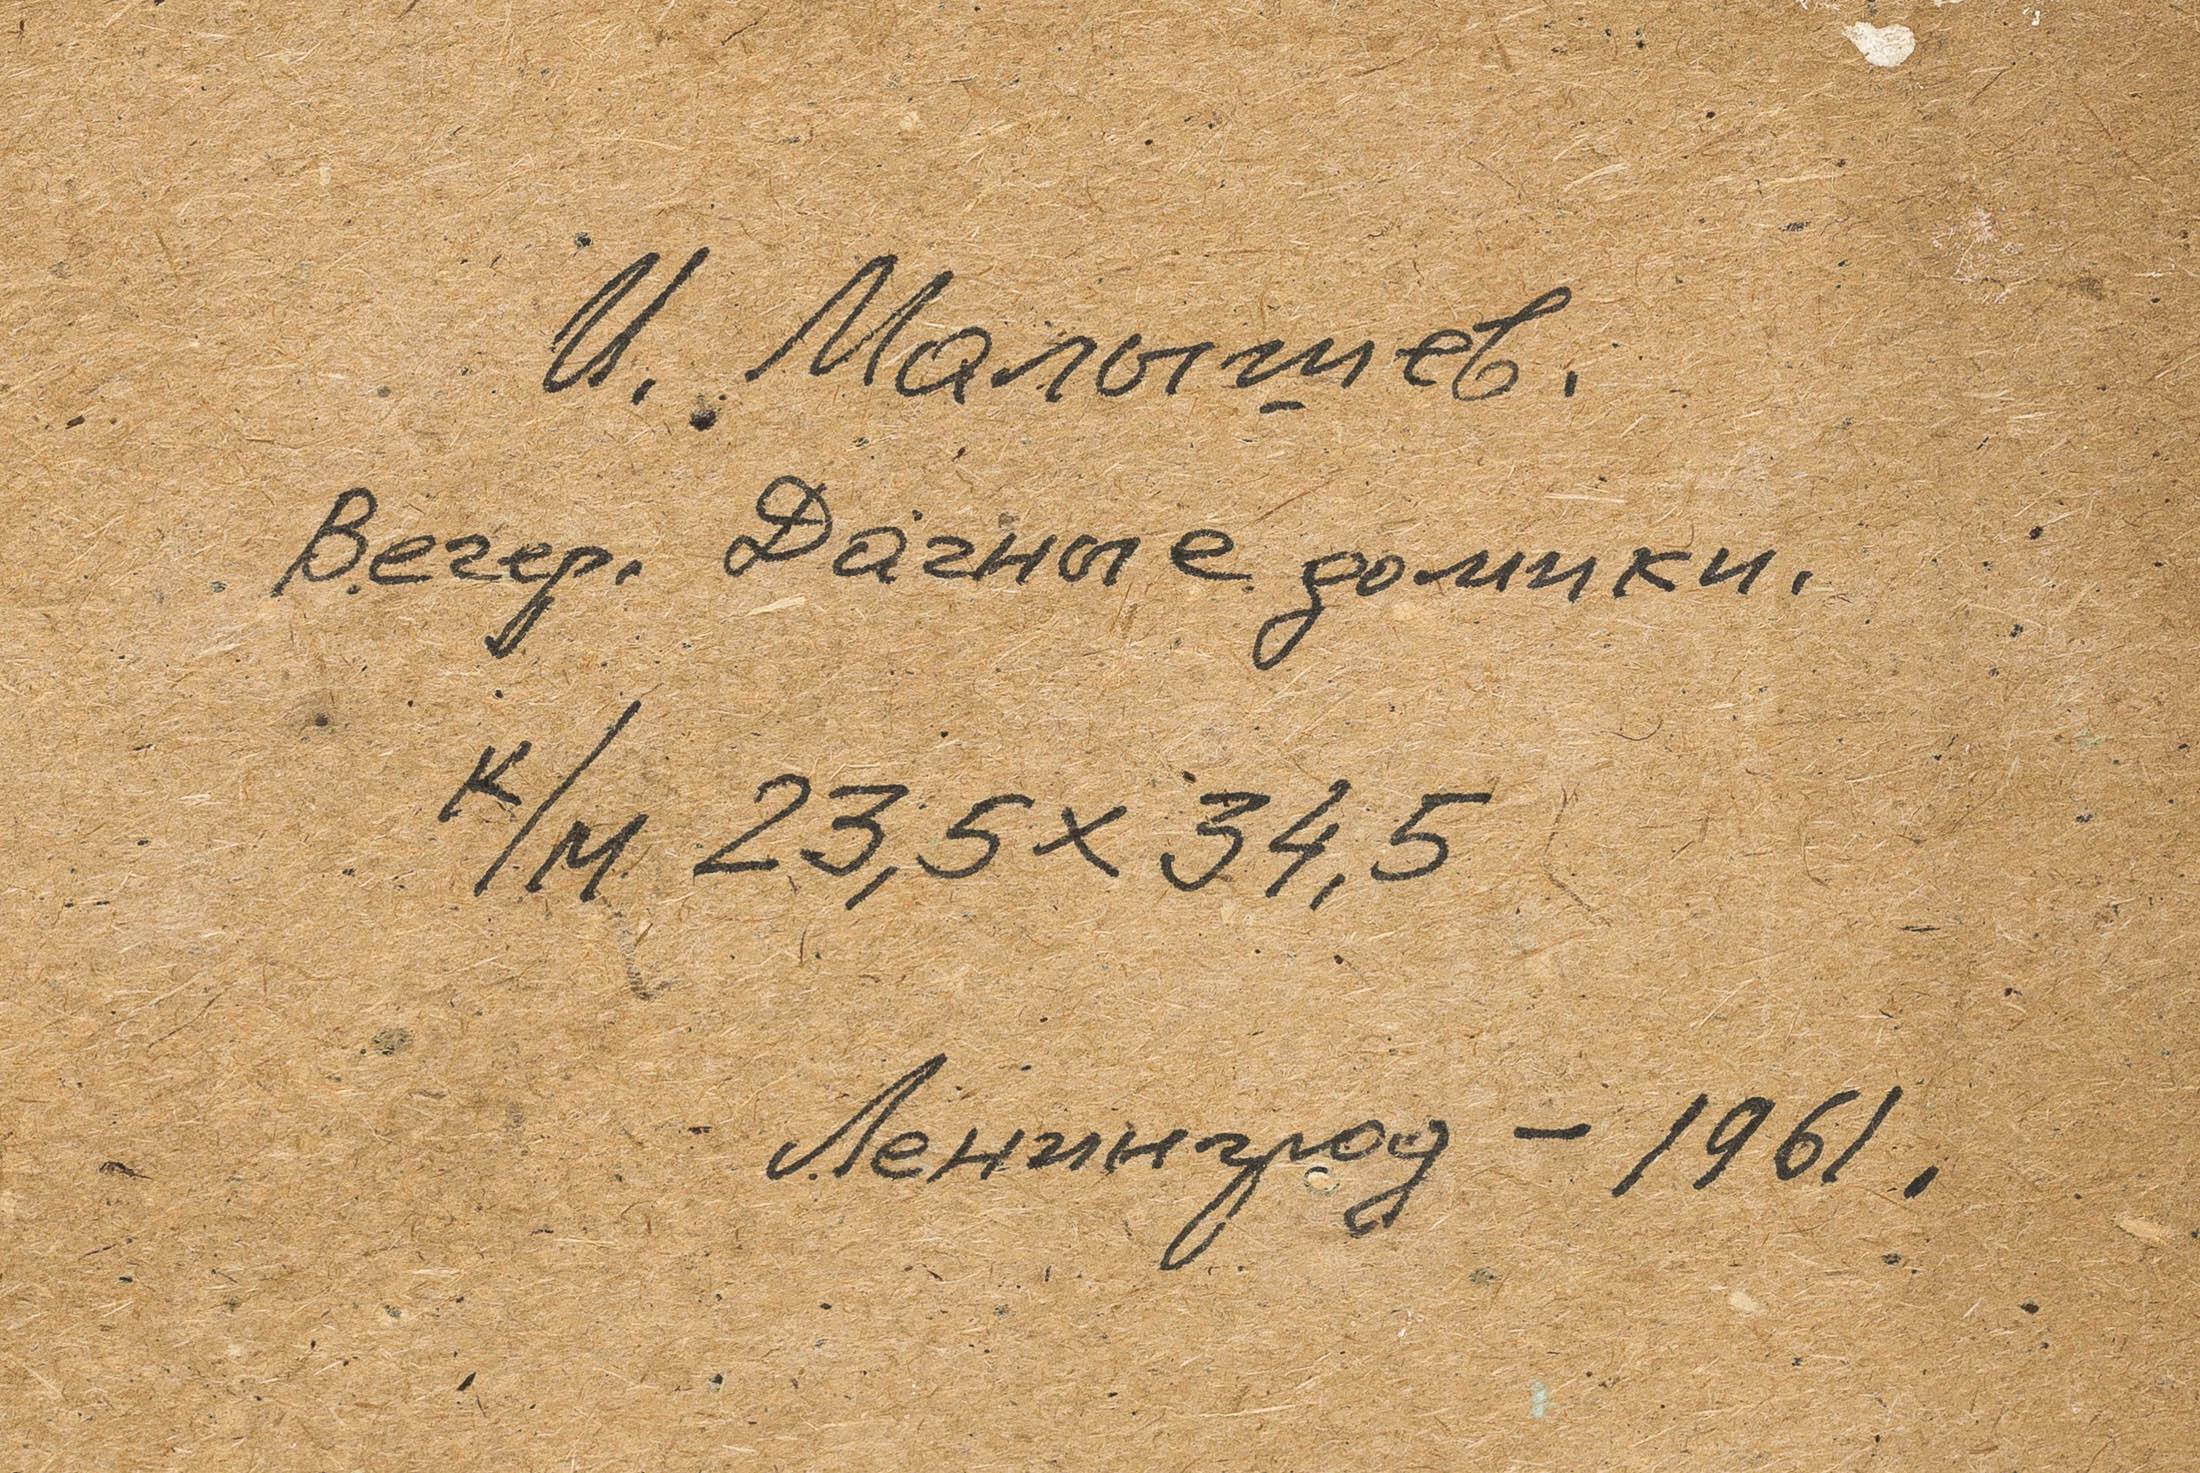 И. Малышев.
Вечер. Дачные домики.
к/м 23,5 х 34,5
Ленинград - 1961.